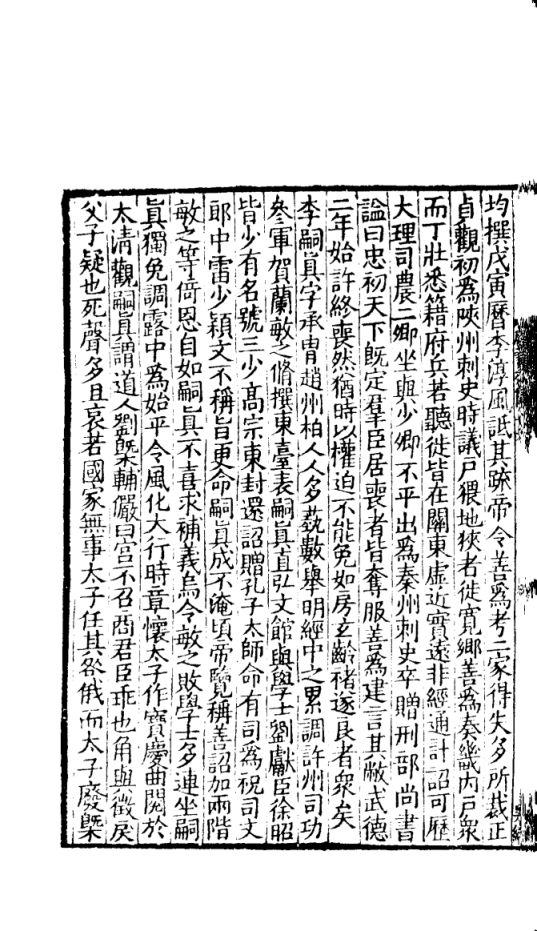 均撰戊寅曆李淳風詆其疎帝令善爲考二家得失多所裁正
貞觀初爲陝州刺史時議戶猥地狹者徙寛鄉善爲奏畿內戶衆
而丁壯悉籍府兵若聽徙皆在關東虛近實遠非經通計詔可歷
大理司農二卿坐與少卿不平出爲秦州刺史卒贈刑部尚書
謚曰忠初天下既定羣臣居喪者皆奪服善爲建言其敝武德
二年始許終喪然猶時以權迫不能免如房玄齡褚遂良者衆矣
李嗣眞字承冑趙州柏人人多蓺數舉明經中之累調許州司功
參軍賀蘭敏之脩撰東臺表嗣眞直弘文館與學士劉獻臣徐昭
皆少有名號三少髙宗東封還詔贈孔子太師命有司爲祝司文
郎中雷少穎文不稱旨更命嗣眞成不淹頃帝覽稱善詔加兩階
敏之等倚恩自如嗣眞不喜求補義烏令敏之敗學士多連坐嗣
眞獨免調露中爲始平令風化大行時章懷太子作寶慶曲閱於
太清觀嗣眞謂道人劉槩輔儼曰宮不召商君臣乖也角與徵戾
父子疑也死聲多且哀若國家無事太子任其咎俄而太子廢槩